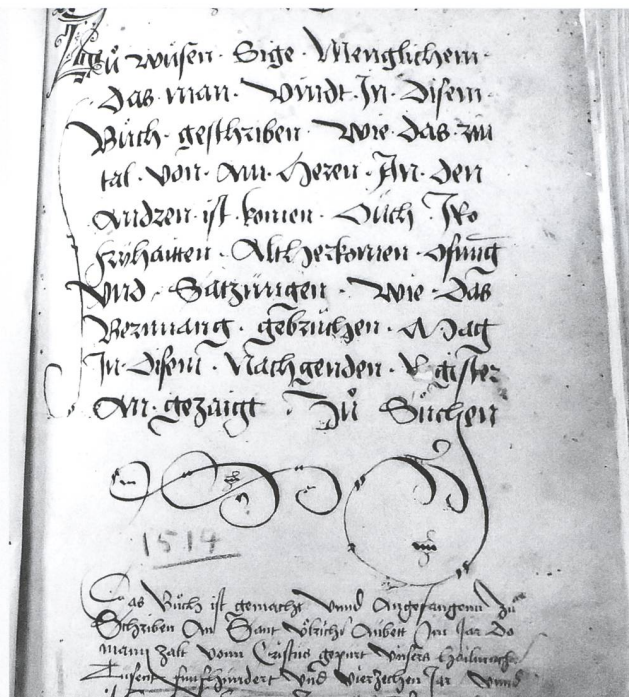 Zu wüsen Sige Menglichem
das man vindt In disem
Bůch geschriben wie das rin
tal von aim Heren In den
Andren ist komen Ouch Iro
fryhaitten Altherkomen ofnung
vnd Satzungen wie das
Yerman gebruchen Mag
In disem Nachgenden Register
An gezaigt Zů Sůchen
1514
Das Bůch ist gemacht vnnd Angefangenn Zů
Schriben An Sant vlrichs Aubett Im Jar Do
mann zalt vonn Cristus gepurt vnsers
Tusent fünffhundert vnd vierzechen Jar vnnd